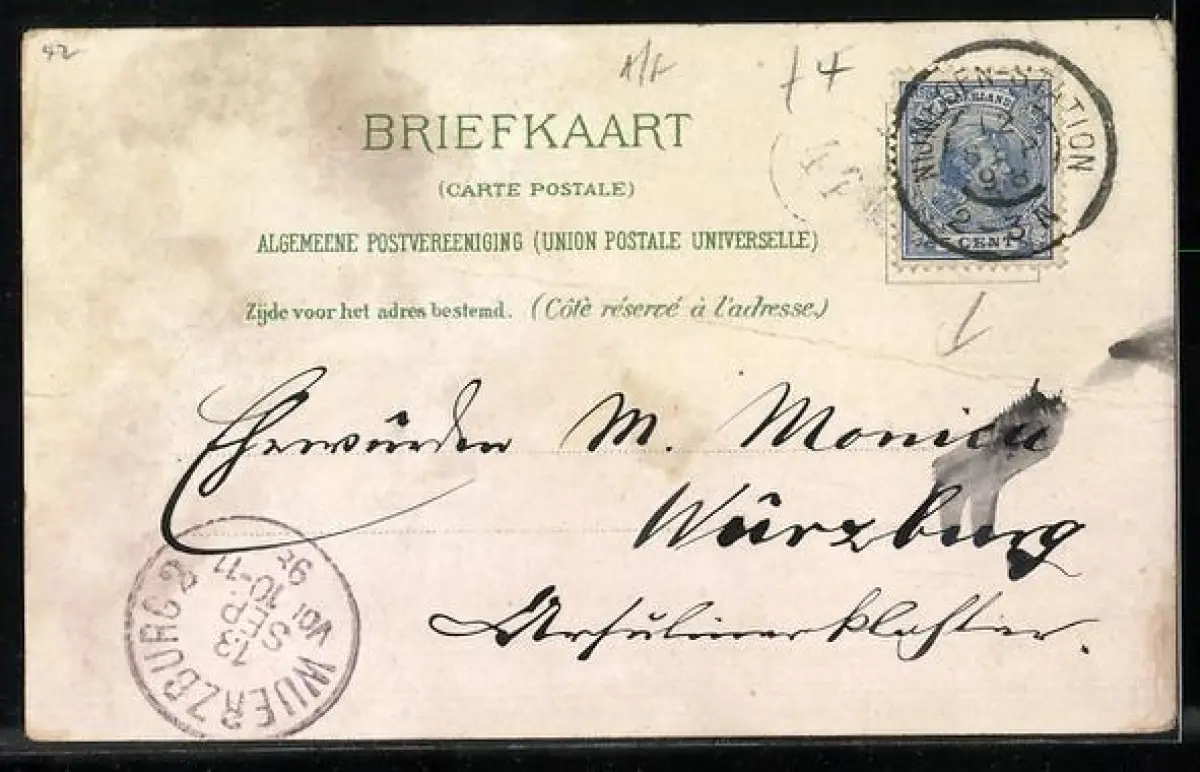 42
BRIEFKAART
(CARTE POSTALE)
ALGEMEENE POSTVEREENIGING (UNION POSTALE UNIVERSELLE)
Zijde voor het adres bestemd. (Côté réservé à l'adresse.)
NIJMEGEN-STATION
12
98
2-3N
CENT
Ehrwürden M. Monica
Würzburg
Ursulinerkloster.
WUERZBURG 2
13
SEP
VOR 10-11